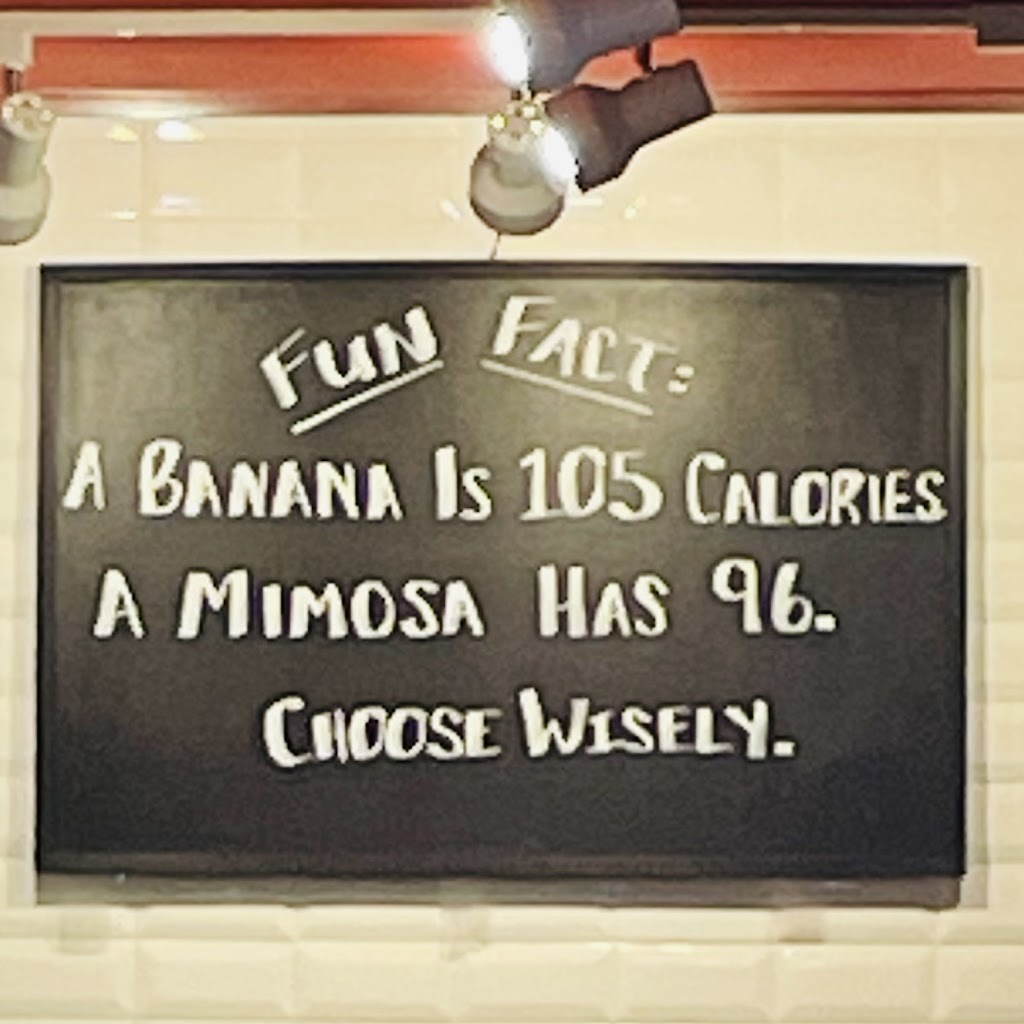 FUN FACT:
A BANANA IS 105 CALORIES
A MIMOSA HAS 96.
CHOOSE WISELY.